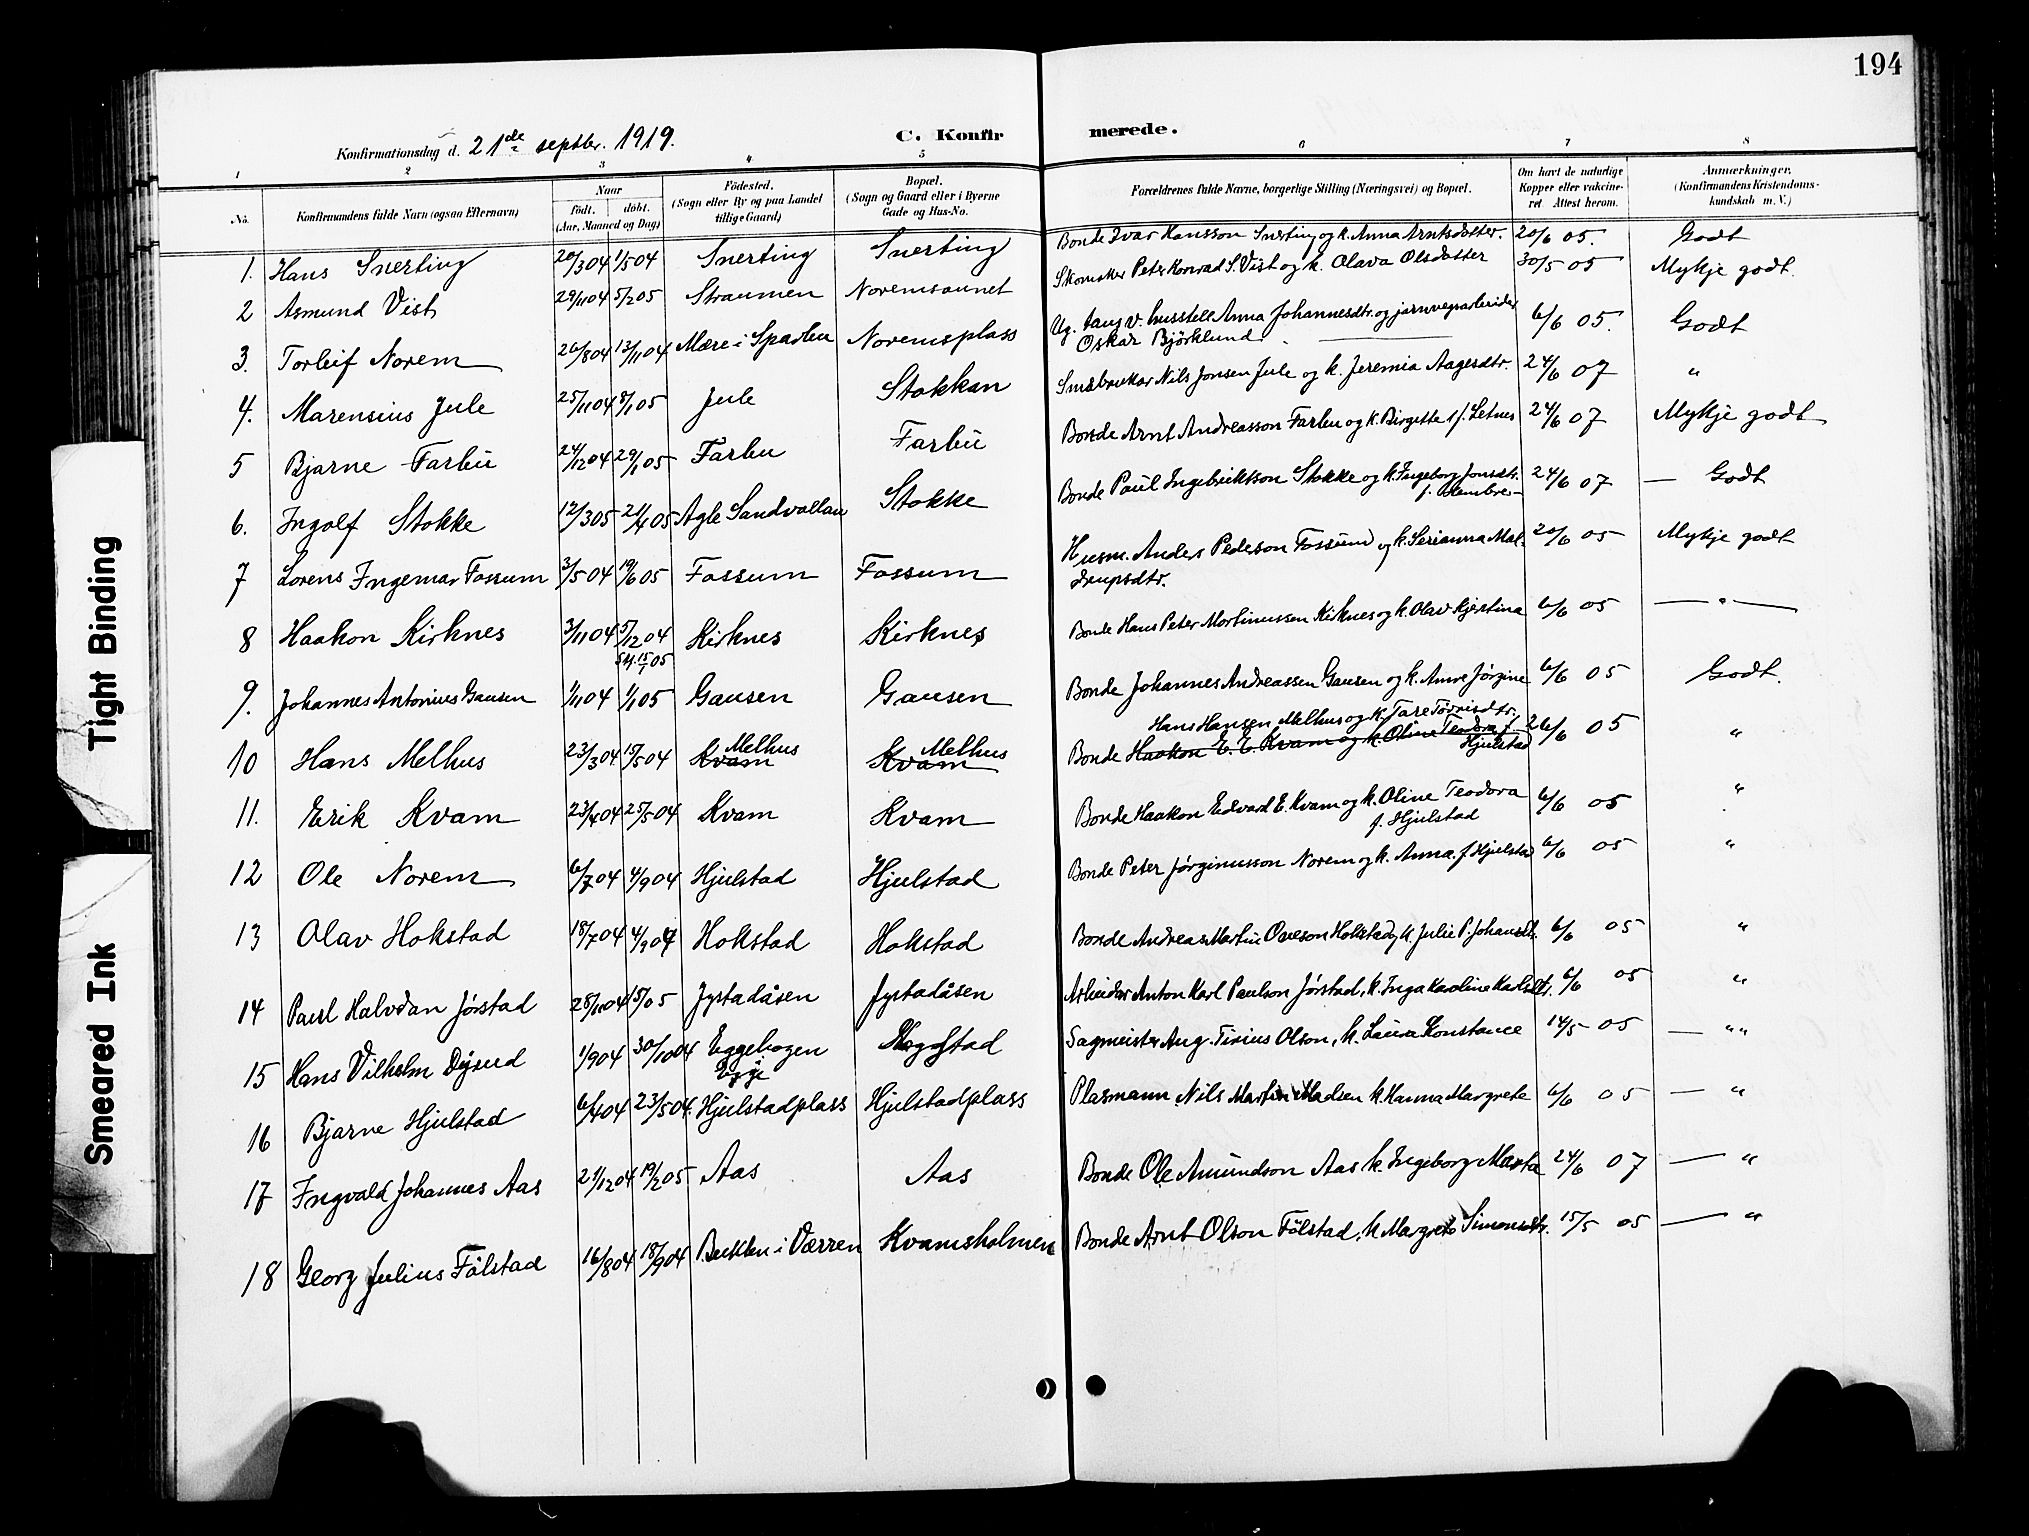 194
Konfirmationsdag d. 21de septbr. 1919.
C. Konfirmerede.
1 2 3 4 5 6 7 8
No.
Konfirmandens fulde Navn (ogsaa Efternavn)
Naar
født. døbt.
(Aar, Maaned og Dag)
Födested.
(Sogn eller By og paa Landet
tillige Gaard)
Bopæl.
(Sogn og Gaard eller i Byerne
Gade og Hus-No.
Forældrenes fulde Navne, borgerlige Stilling (Næringsvei) og Bopæl.
Om havt de naturlige
Kopper eller vakcine-
ret Attest herom.
Anmærkninger,
(Konfirmandens Kristendoms-
kundskab m. V.)
1. Hans Snerting 20/3 04 1/5 04 Snerting Snerting Bonde Ivar Hansson Snerting og k. Anna Arntsdotter. 20/6 05. Godt
2 Asmund Vist 29/11 04 5/2 05 Straumen Noremsaunet Skomaker Peter Konrad S. Vist og k. Olava Olsdotter 30/5 05 Mykje godt.
3. Torleif Norem 26/8 04 13/11 04 Mære i Sparbu Noremsplass Ug. taus v. husstell Anna Johannesdtr. og jarnvegsarbeider
Oskar Bjørklund. 6/6 05. Godt
4. Marensius Jule 25/11 04 8/1 05 Jule Stokkan Småbrukar Nils Jonsen Jule og k. Jeremia Aagesdtr. 24/6 07 "
5 Bjarne Farbu 24/12 04 29/1 05 Farbu Farbu Bonde Arnt Andreasson Farbu og k. Birgitte f. Letnes 24/6 07 Mykje godt
6. Ingolf Stokke 12/3 05 21/4 05 Agle Sandvollan Stokke Bonde Paul Ingebriktson Stokke og k. Ingeborg Jonsdtr. 24/6 07 — Godt
7 Lorens Ingemar Fossum 3/5 04 19/6 05 Fossum Fossum Husm. Anders Pederson Fossum og k. Serianna Mal-
drupsdtr. 20/6 05 Mykje godt
8 Haakon Kirknes 3/11 04 5/12 04
st. 15/1 05 Kirknes Kirknes Bonde Hans Peter Martinussen Kirknes og k. Olav Kjerstina 6/6 05 — " —
9. Johannes Antonius Gausen 1/11 04 1/1 05 Gausen Gausen Bonde Johannes Andreassen Gausen og k. Anne Jørgine 6/6 05 Godt.
10 Hans Melhus 23/3 04 15/5 04 Melhus Kvam Melhus Kvam Hans Hansen Melhus og k. Tore Torrisdtr.
Bonde Haakon E. E. Kvam og k. Oline Teodora f.
Hjulstad 26/6 05 "
11. Erik Kvam 23/4 04 25/5 04 Kvam Kvam Bonde Haakon Edvard E. Kvam og k. Oline Teodora
f. Hjulstad 6/6 05 "
12 Ole Norem 6/7 04 4/9 04 Hjulstad Hjulstad Bonde Peter Jørginusson Norem og k. Anna f. Hjulstad 6/6 05 "
13 Olav Hokstad 18/7 04 4/9 04 Hokstad Hokstad Bonde Andreas Martin Oveson Hokstad, k. Julie P. Johansdtr. 6/6 05 "
14 Paul Halvdan Jørstad 28/11 04 15/1 05 Jystadåsen Jystadåsen Arbeidar Anton Karl Paulson Jørstad, k. Inga Karoline Karlsdtr. 6/6 05 "
15 Hans Vilhelm Dysud 1/9 04 30/10 04 Eggebogen
Egge Sagmeister Aug. Tirius Olson, k. Laura Konstance 14/5 05 — " "
16 Bjarne Hjulstad 6/4 04 23/5 04. Hjulstadplass Hjulstadplass Plasmann Nils Martin Madsen k. Hanna Margrete 6/6 05 — "
17 Ingvald Johannes Aas 21/12 04 19/2 05 Aas Aas Bonde Ole Amundson Aas k. Ingeborg Marta 24/6 07 — "
18 Georg Julius Følstad 16/8 04 18/9 04 i Værren Kvamsholmen Bonde Arnt Olson Følstad, k. Margrete Simonsdtr. 15/5 05 — "
Tight Binding
Smeared Ink